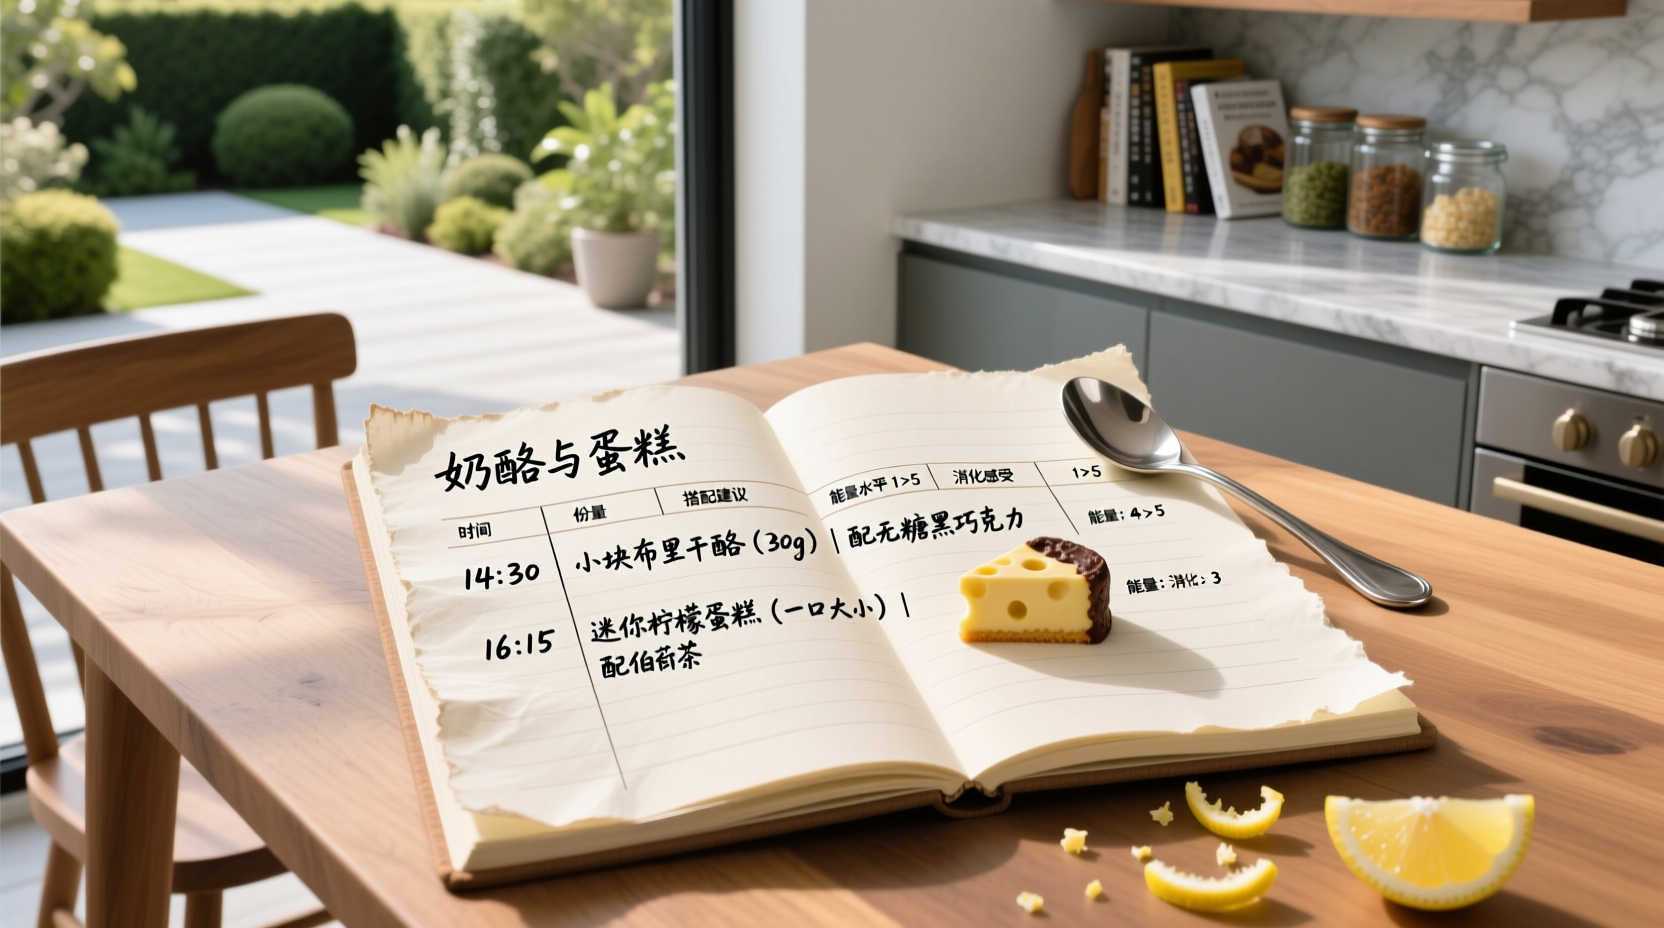 奶酪与蛋糕
时间 份量 搭配建议 能量水平 1>5 消化感受 1>5
14:30 小块布里干酪 (30g) | 配无糖黑巧克力 能量: 4>5
16:15 迷你柠檬蛋糕 (一口大小) | 能量: 消化: 3
配伯荷茶